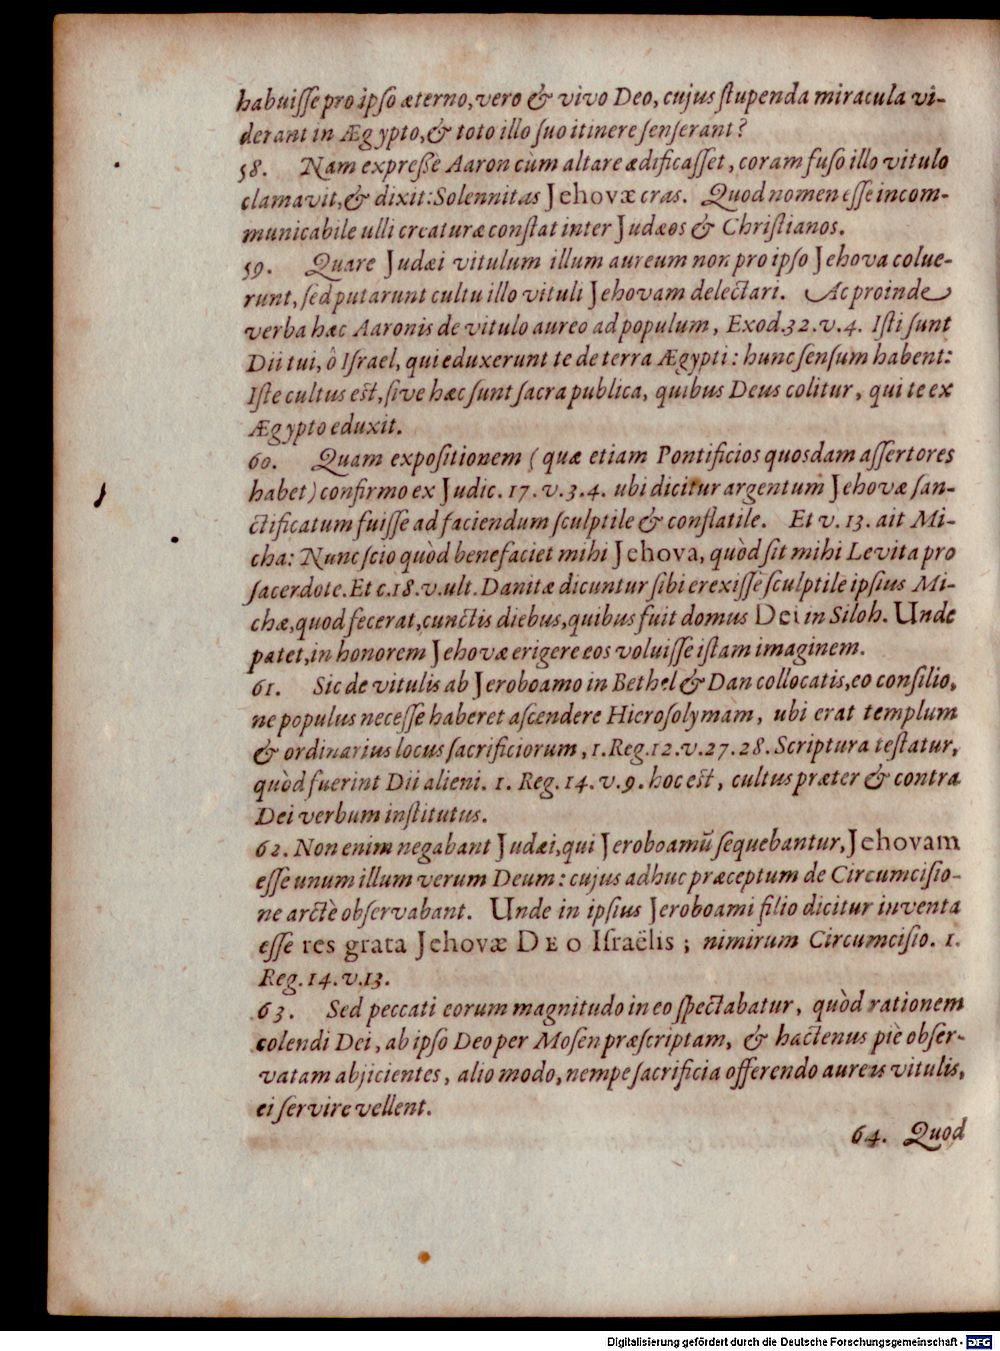 habuiſſe pro ipſo æterno, vero & vivo Deo, cujus ſtupenda miracula vi-
derant in Ægypto, & toto illo ſuo itinere ſenſerant?
58. Nam expreſſe Aaron cùm altare ædificaſſet, coram fuſo illo vitulo
clamavit, & dixit: Solennitas Jehovæ cras. Quod nomen eſſe incom-
municabile ulli creaturæ conſtat inter Judæos & Chriſtianos.
59. Quare Judæi vitulum illum aureum non pro ipſo Jehova colue-
runt, ſed putarunt cultu illo vituli Jehovam delectari. Ac proinde
verba hæc Aaronis de vitulo aureo ad populum, Exod.32.v.4. Iſti ſunt
Dii tui, ô Iſrael, qui eduxerunt te de terra Ægypti: hunc ſenſum habent:
Iſte cultus eſt, ſive hæc ſunt ſacra publica, quibus Deus colitur, qui te ex
Ægypto eduxit.
60. Quam expoſitionem (quæ etiam Pontificios quosdam aſſertores
habet) confirmo ex Judic. 17. v. 3. 4. ubi dicitur argentum Jehovæ ſan-
ctificatum fuiſſe ad faciendum ſculptile & conflatile. Et v. 13. ait Mi-
cha: Nunc ſcio quòd benefaciet mihi Jehova, quòd ſit mihi Levita pro
ſacerdote. Et c.18.v.ult. Danitæ dicuntur ſibi erexiſſe ſculptile ipſius Mi-
chæ, quod fecerat, cunctis diebus, quibus fuit domus Dei in Siloh. Unde
patet, in honorem Jehovæ erigere eos voluiſſe iſtam imaginem.
61. Sic de vitulis ab Jeroboamo in Bethel & Dan collocatis, eo conſilio,
ne populus neceſſe haberet aſcendere Hieroſolymam, ubi erat templum
& ordinarius locus ſacrificiorum, 1.Reg.12.v.27.28. Scriptura teſtatur,
quòd fuerint Dii alieni. 1. Reg. 14. v. 9. hoc eſt, cultus præter & contra
Dei verbum inſtitutus.
62. Non enim negabant Judæi, qui Jeroboamũ ſequebantur, Jehovam
eſſe unum illum verum Deum: cujus adhuc præceptum de Circumciſio-
ne arctè obſervabant. Unde in ipſius Jeroboami filio dicitur inventa
eſſe res grata Jehovæ DEO Iſraëlis; nimirum Circumciſio. 1.
Reg. 14. v.13.
63. Sed peccati eorum magnitudo in eo ſpectabatur, quòd rationem
colendi Dei, ab ipſo Deo per Moſen præſcriptam, & hactenus piè obſer-
vatam abjicientes, alio modo, nempe ſacrificia offerendo aureis vitulis,
ei ſervire vellent.
64. Quod
Digitalisierung gefördert durch die Deutsche Forschungsgemeinschaft - DFG